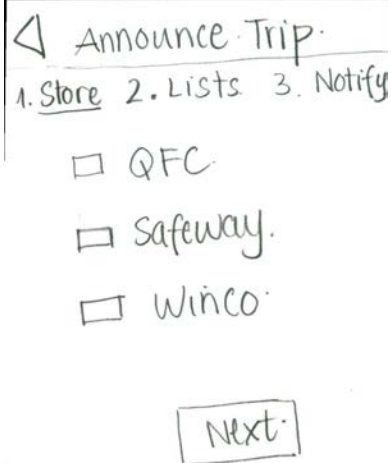 Announce Trip.
1. Store 2. Lists 3. Notify
QFC.
Safeway.
Winco.
Next.